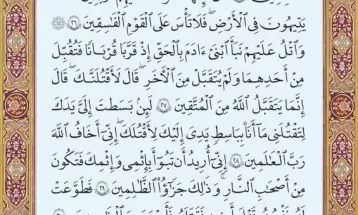 يَتِيهُونَ فِي ٱلْأَرْضِ فَلَا تَأْسَ عَلَى ٱلْقَوْمِ ٱلْفَٰسِقِينَ ٢٦
وَٱتْلُ عَلَيْهِمْ نَبَأَ ٱبْنَيْ ءَادَمَ بِٱلْحَقِّ إِذْ قَرَّبَا قُرْبَانًا فَتُقُبِّلَ
مِنْ أَحَدِهِمَا وَلَمْ يُتَقَبَّلْ مِنَ ٱلْأٓخَرِ قَالَ لَأَقْتُلَنَّكَ ۖ قَالَ
إِنَّمَا يَتَقَبَّلُ ٱللَّهُ مِنَ ٱلْمُتَّقِينَ ٢٧ لَئِنۢ بَسَطتَ إِلَيَّ يَدَكَ
لِتَقْتُلَنِي مَآ أَنَا۠ بِبَاسِطٍ يَدِيَ إِلَيْكَ لِأَقْتُلَكَ ۖ إِنِّيٓ أَخَافُ ٱللَّهَ
رَبَّ ٱلْعَٰلَمِينَ ٢٨ إِنِّيٓ أُرِيدُ أَن تَبُوٓأَ بِإِثْمِي وَإِثْمِكَ فَتَكُونَ
مِنْ أَصْحَٰبِ ٱلنَّارِ ۚ وَذَٰلِكَ جَزَٰٓؤُا۟ ٱلظَّٰلِمِينَ ٢٩ فَطَوَّعَتْ